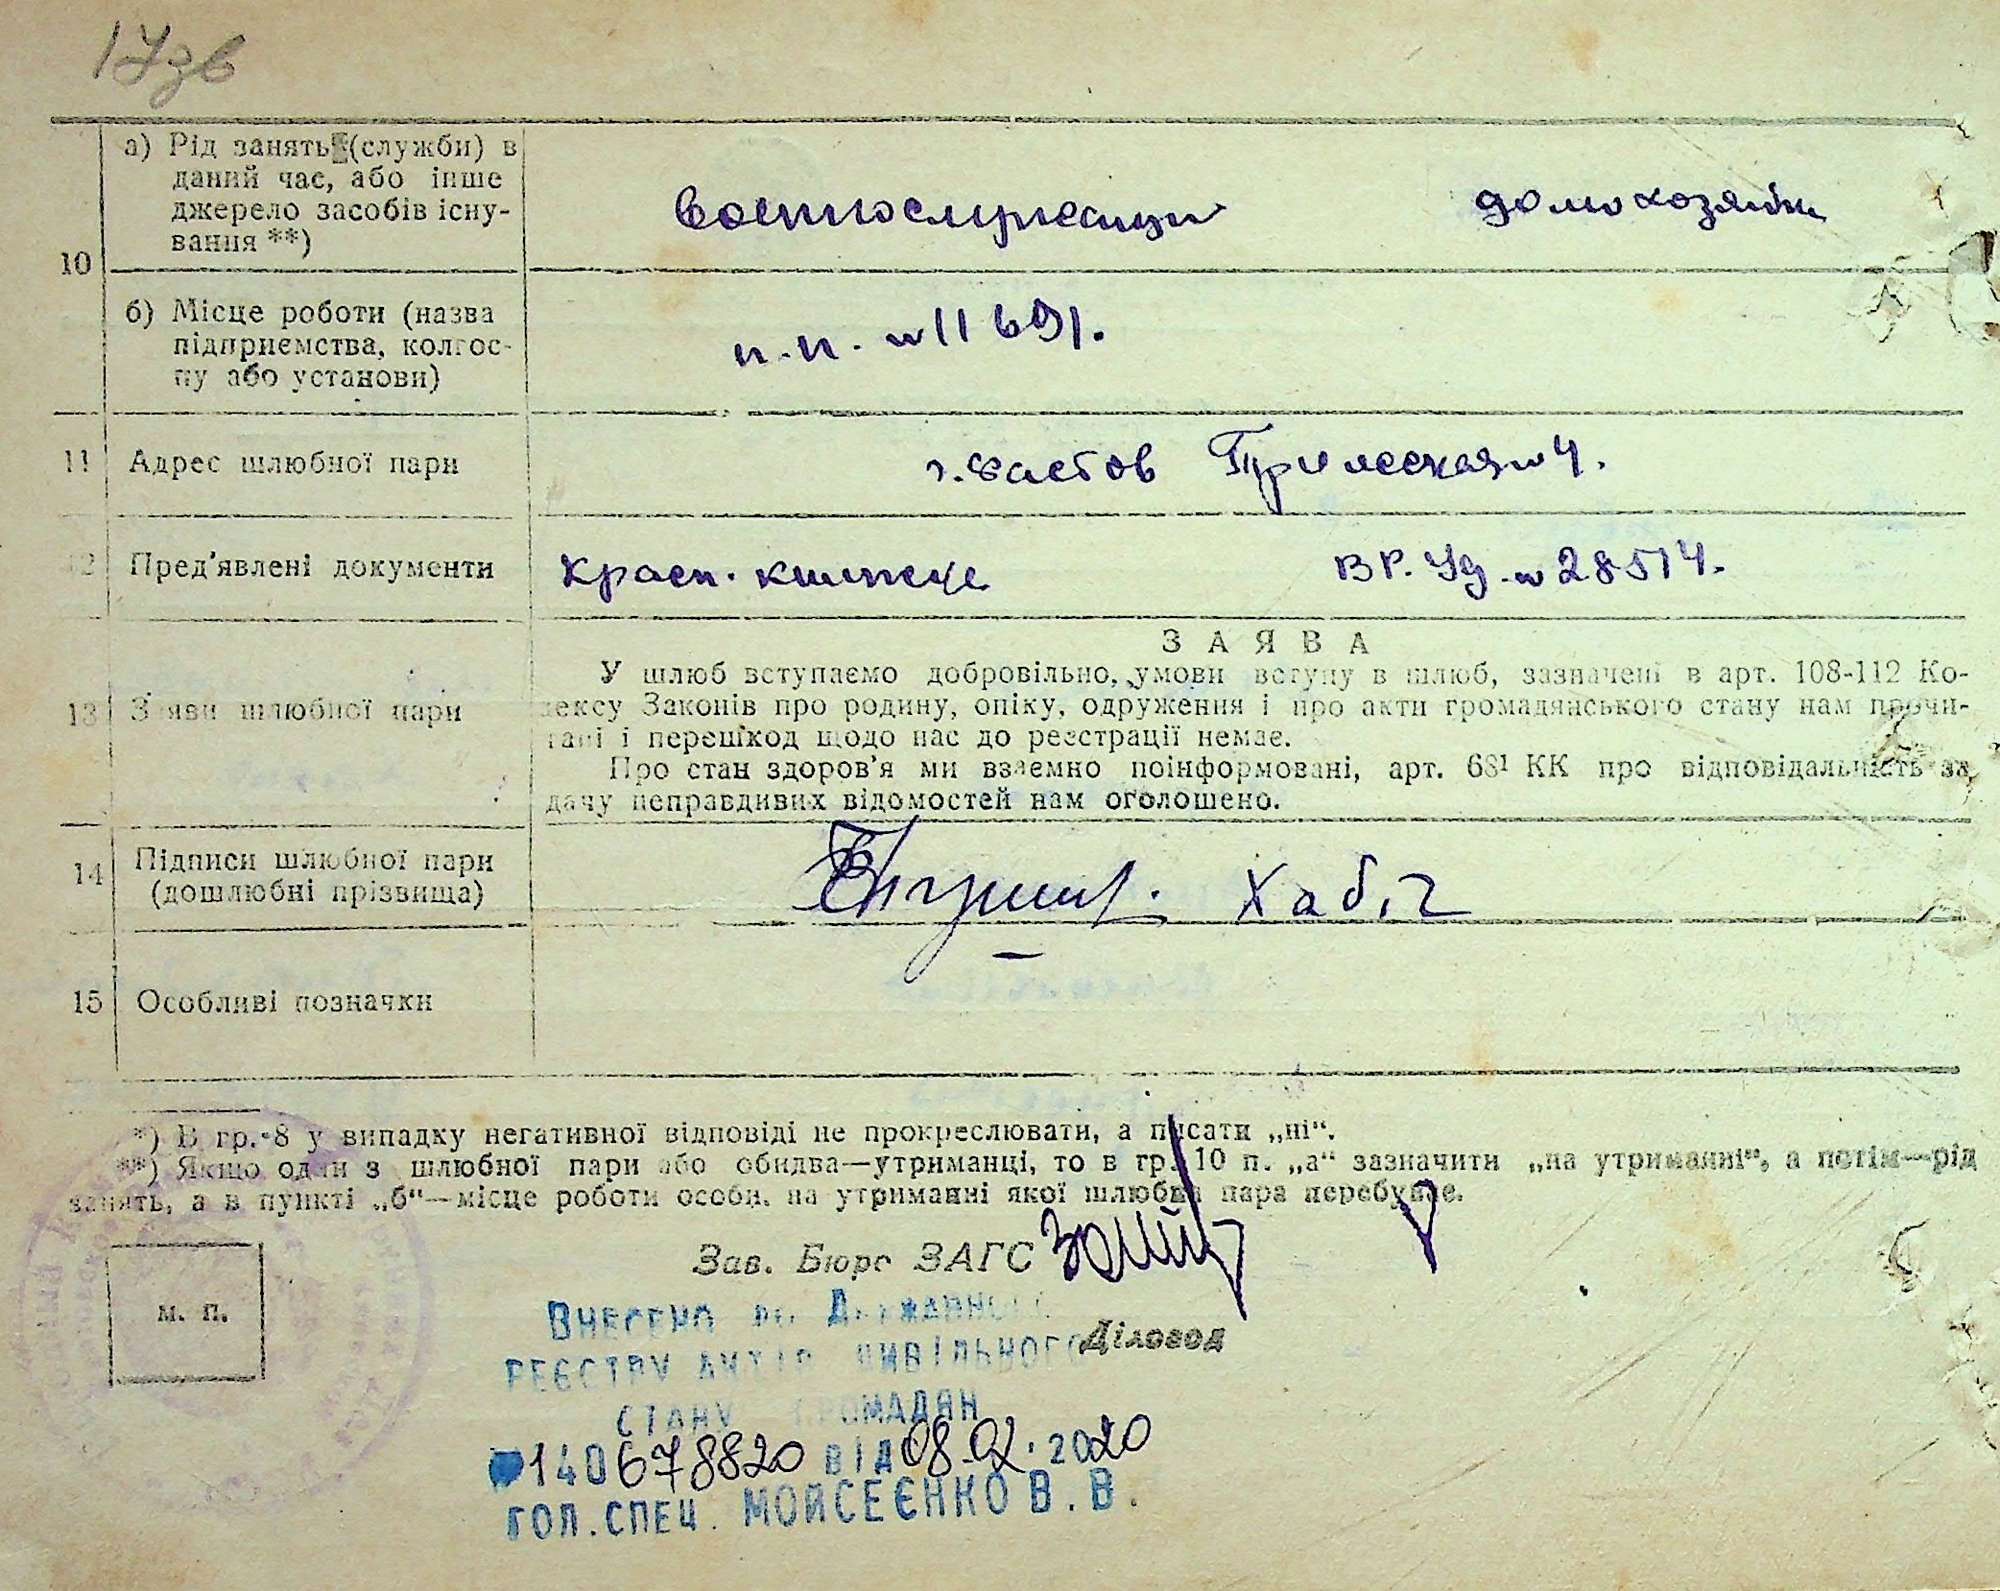 17зв
10
а) Рід занять (служби) в
даний час, або інше
джерело засобів існу-
вання **)
военнослужащи домохозяйка
б) Місце роботи (назва
підприємства, колгос-
пу або установи)
п.п. №11691.
11 Адрес шлюбної пари
г. Фастов №4.
12 Пред'явлені документи
Красн. книжеце ВР. Уд. №28514.
13 Заяви шлюбної пари
ЗАЯВА
У шлюб вступаємо добровільно, умови вступу в шлюб, зазначені в арт. 108-112 Ко-
дексу Законів про родину, опіку, одруження і про акти громадянського стану нам прочи-
тані і перешкод щодо нас до реєстрації немає.
Про стан здоров'я ми взаємно поінформовані, арт. 68¹ КК про відповідальність за
дачу неправдивих відомостей нам оголошено.
14 Підписи шлюбної пари
(дошлюбні прізвища)
Хабіч
15 Особливі позначки
*) В гр. 8 у випадку негативної відповіді не прокреслювати, а писати „ні“.
**) Якщо один з шлюбної пари або обидва—утриманці, то в гр. 10 п. „а“ зазначити „на утриманні“, а потім—рід
занять, а в пункті „б“—місце роботи особи, на утриманні якої шлюбна пара перебуває.
Зав. Бюро ЗАГС
м. п.
Діловод
Внесено до Державного
реєстру актів цивільного
стану громадян
140678820 від 08.02.2020
гол.спец. Мойсеєнко В.В.